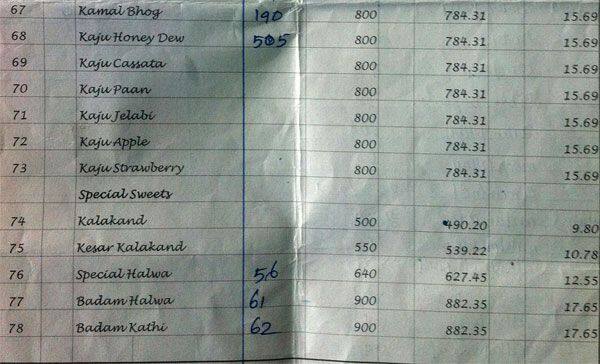 67 Kamal Bhog 190 800 784.31 15.69
68 Kaju Honey Dew 505 800 784.31 15.69
69 Kaju Cassata 800 784.31 15.69
70 Kaju Paan 800 784.31 15.69
71 Kaju Jelabi 800 784.31 15.69
72 Kaju Apple 800 784.31 15.69
73 Kaju Strawberry 800 784.31 15.69
Special Sweets
74 Kalakand 500 490.20 9.80
75 Kesar Kalakand 550 539.22 10.78
76 Special Halwa 56 640 627.45 12.55
77 Badam Halwa 61 900 882.35 17.65
78 Badam Kathi 62 900 882.35 17.65